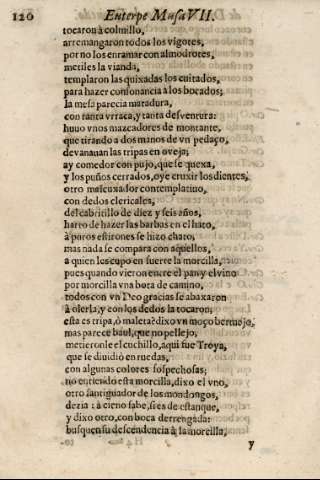 120 Euterpe Musa VII.
tocaron à colmillo,
arremangaron todos los vigotes,
por no los enramar con almodrotes,
meriles la vianda,
templaron las quixadas los cuitados,
para hazer consonancia a los bocados;
la mesa parecia matadura,
con tanta vrraca, y tanta desventura:
huuo vnos mazcadores de montante,
que tirando a dos manos de vn pedaço,
devanauan las tripas en oveja;
ay comedor con pujo, que se quexa,
y los puños cerrados, oye cruxir los dientes,
otro mascuxador contemplatiuo,
con dedos clericales,
del cabritillo de diez y seis años,
harto de hazer las barbas en el hato,
à puros estirones se hizo chato,
mas nada se compara con aquellos,
a quien les cupo en suerte la morcilla,
pues quando vieron entre el pan y el vino
por morcilla vna bota de camino,
todos con vn Deo gracias se abaxaron
à olerla, y con los dedos la tocaron;
esta es tripa, ò maleta? dixo vn moço bermejo,
mas parece baul, que no pellejo,
metieronle el cuchillo, aqui fue Troya,
que se diuidiò en ruedas,
con algunas colores sospechosas;
no entiendo esta morcilla, dixo el vno,
otro santiguador de los mondongos,
dezia : à cieno sabe, si es de estanque,
y dixo otro, con boca derrengada:
busquen su descendencia à la morcilla,
y